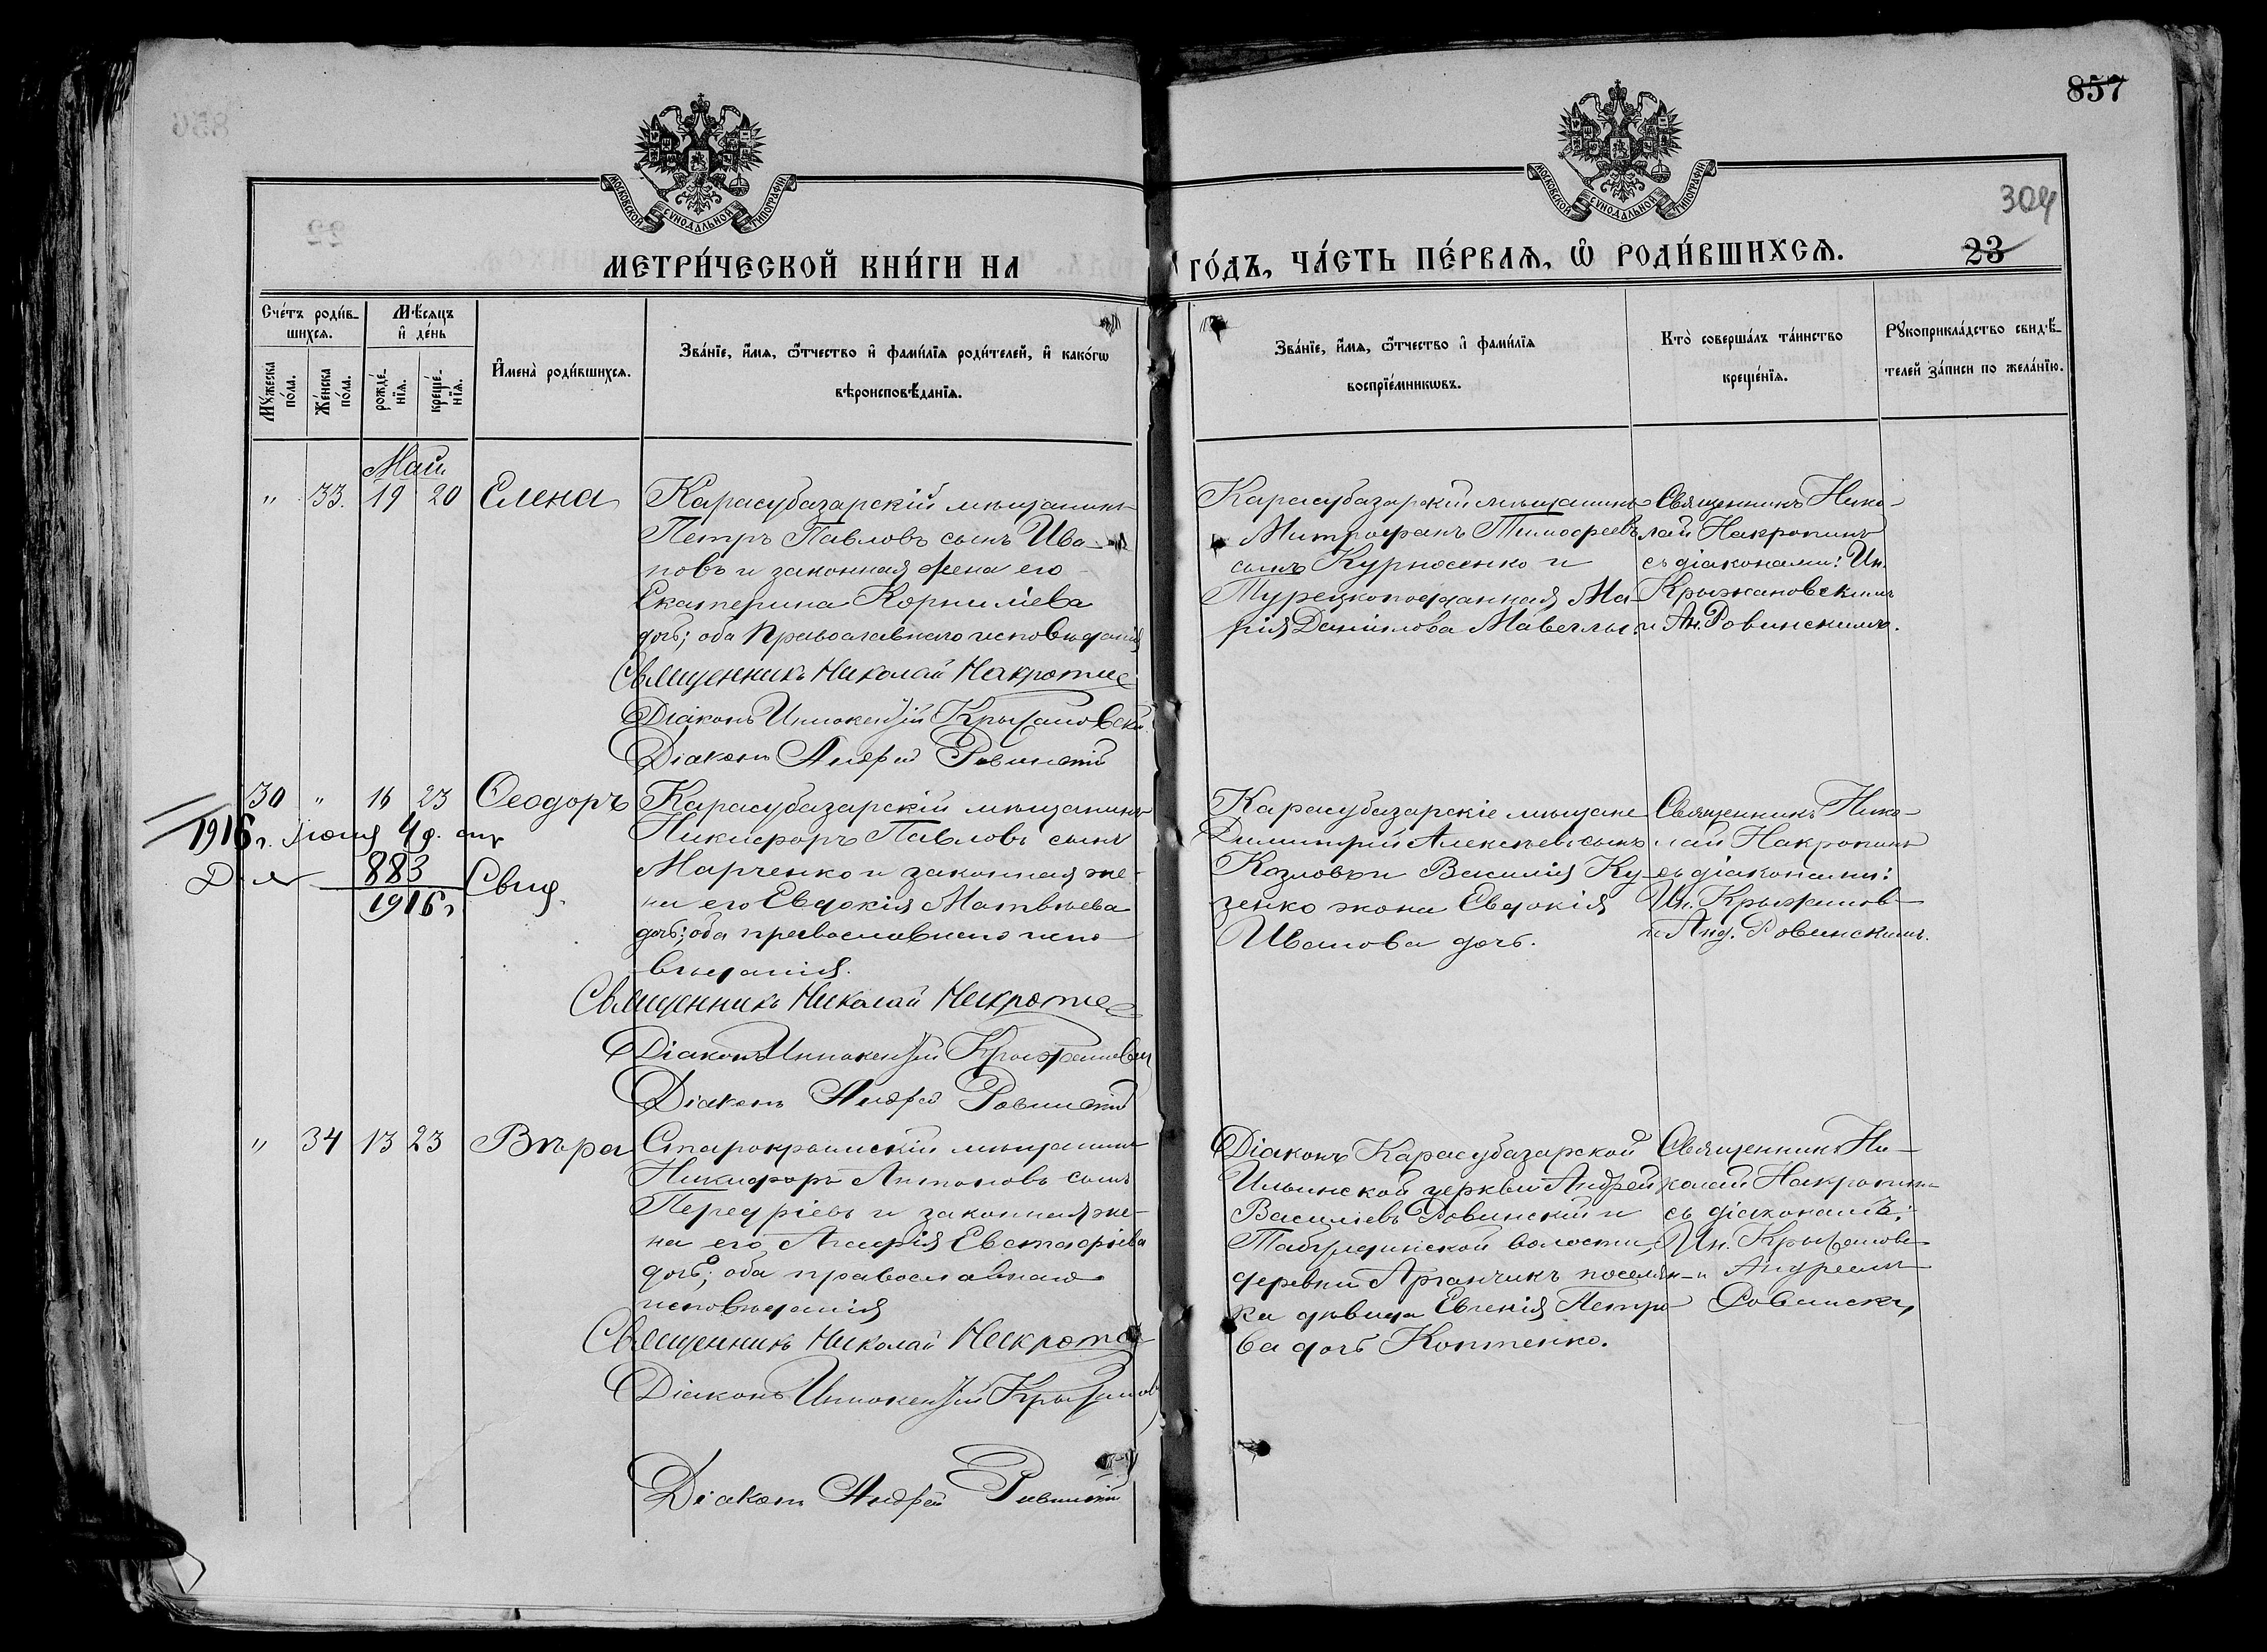 857
304
23
МОСКОВСКОЙ СѴНОДАЛЬНОЙ ТИПОГРАФІИ
МОСКОВСКОЙ СѴНОДАЛЬНОЙ ТИПОГРАФІИ
МЕТРИ́ЧЕСКОЙ КНИ́ГИ НА
ГО́ДЪ, ЧА́СТЬ ПЕ́РВАѦ, Ѽ РОДИ́ВШИХСѦ.
Сче́тъ роди́в-
шихсѧ.
Мѣ́сѧцъ
и҆ де́нь
Мꙋ́жеска
по́ла.
Же́нска
по́ла.
рожде́-
нїѧ.
креще́-
нїѧ.
И҆мена̀ роди́вшихсѧ.
Зва́нїе, и҆́мѧ, ѻ҆́тчество и҆ фами́лїѧ роди́телей, и҆ како́гѡ
вѣроисповѣ́данїѧ.
Зва́нїе, и҆́мѧ, ѻ҆́тчество и҆ фами́лїѧ
воспрїе́мникѡвъ.
Кто̀ соверша́лъ та́инство
креще́нїѧ.
Рꙋкоприкла́дство свидѣ́-
телей за́писи по жела́нїю.
Май
" 33. 19 20 Елена
Карасубазарскій мѣщанинъ
Петръ Павловъ сынъ Ива-
новъ и законная жена его
Екатерина Корнилiева
дочь; оба Православнаго исповѣданія
Священникъ Николай
Діаконъ Иннокентій Крыжановскій
Діаконъ Андрей Ровинскій
Карасубазарскій мѣщанинъ
Митрофанъ Тимофеевъ
сынъ Курносенко и
Турецкоподданная Ма-
рія Данилова
Священникъ Нико-
лай
съ діаконами: Ин.
Крыжановскимъ
и Ан. Ровинскимъ.
30 " 16 23 Ѳеодоръ
1916 г. Іюня 4 д.
883
1916 г.
Свид.
Карасубазарскій мѣщанинъ
Никифоръ Павловъ сынъ
Марченко и законная же-
на его Евдокія Матвѣева
дочь; оба православнаго испо-
вѣданія.
Священникъ Николай
Діаконъ Иннокентій
Діаконъ Андрей Ровинскій
Карасубазарскіе мѣщане
Димитрій Алексѣевъ сынъ
Козловъ и Василія Ку-
ценко жена Евдокія
Иванова дочь.
Священникъ Нико-
лай
съ діаконами:
Ин. Крыжанов-
и Анд. Ровинскимъ.
" 34 13 23 Вѣра
Старокрымскій мѣщанинъ
Никифоръ Антоновъ сынъ
и законная же-
на его Агафія Евстафіева
дочь; оба православнаго
исповѣданія
Священникъ Николай
Діаконъ Иннокентій
Діаконъ Андрей Ровинскій
Діаконъ Карасубазарской
Ильинской церкви Андрей
Василіевъ Ровинскій и
Табулдинской волости,
деревни Арганчикъ поселян-
ка дѣвица Евгенія Петро-
ва дочь Коптенко.
Священникъ Ни-
колай
съ діаконами:
Ин.
и Андреемъ